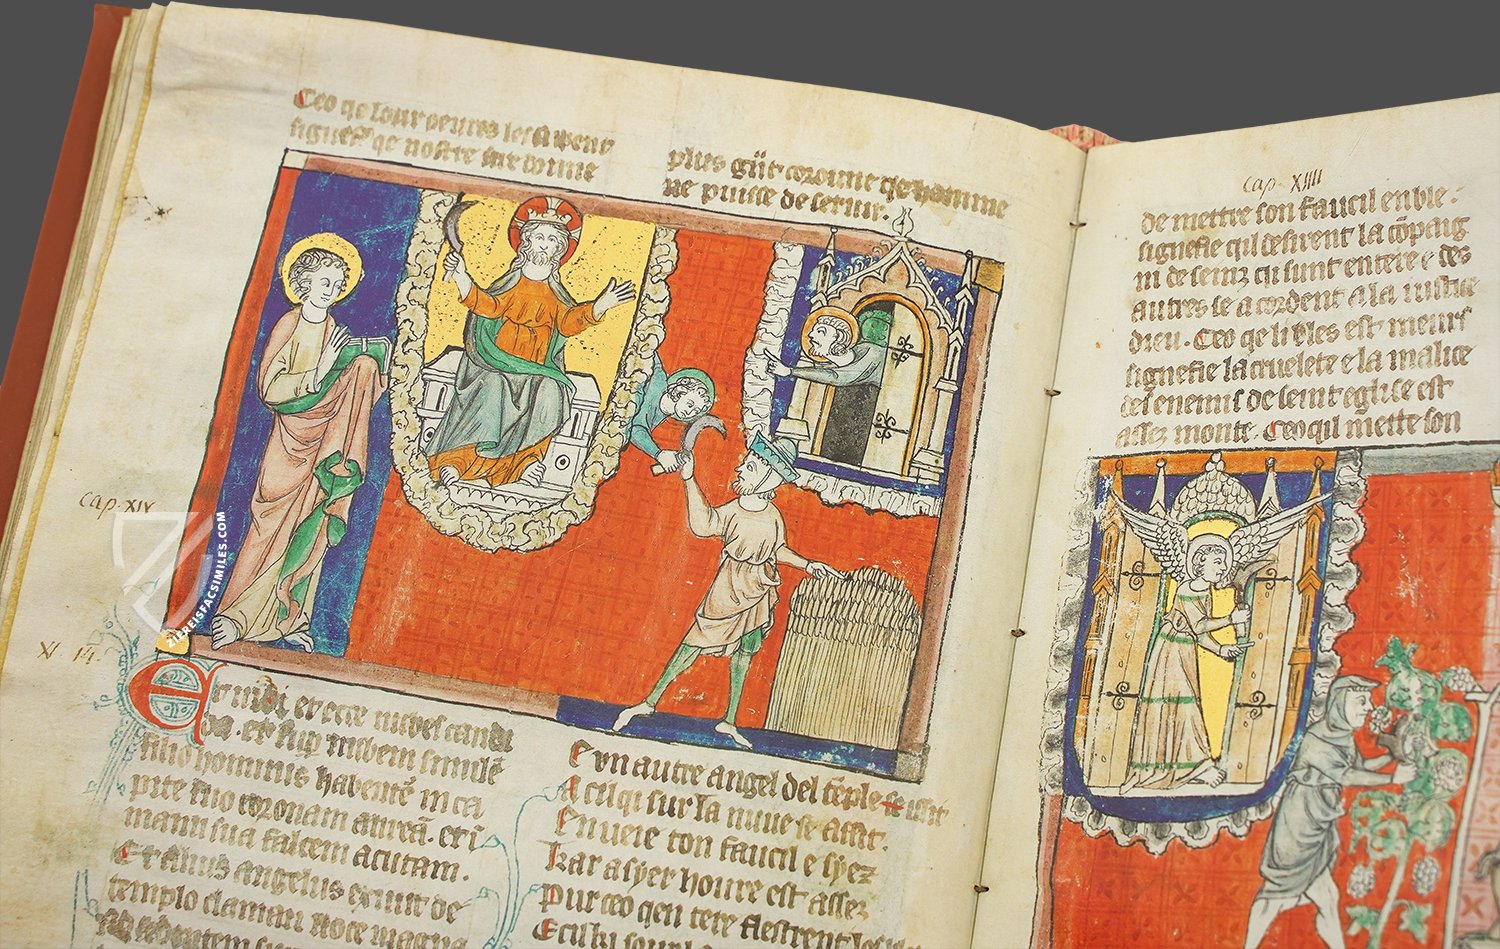 Ceo qe lour oeures les
signefie qe nostre sire donne
plus gñt coroune qe homme
ne puisse de seruir.
Cap. XIV
XI 14.
ZIEREISFACSIMILES.COM
Et uidi, et ecce nubes candi
da. et sup nubem similē
filio hominis habentē in ca
pite suo coronam aureā. et ī
manu sua falcem acutam.
Et alius angelus exiuit de
templo claman uoce magna
E vn autre angel del tēple issit
A celqi sur la nuue se assit.
En ueie ton faucil e syez
kar a syer houre est assez
Pur ceo qen tere
E cil ki
Cap. XIIII
de mettre son faucil en ble.
signefie qil desirent la cōpaig
ni de seinz qi sunt en tere e des
autres se acordent a la iustice
dieu. Ceo qe li bles est meurs
signefie la cruelete e la malice
des enemis de seint eglise est
assez monte. Ceo qil mette son